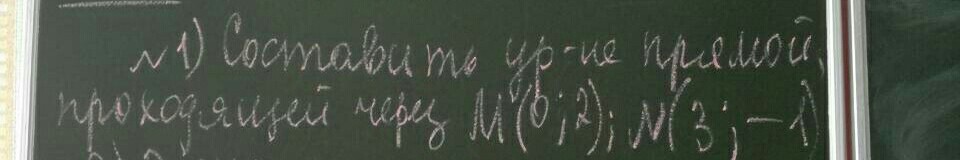 №1) Составить ур-ие прямой,
проходящей через М(0;2); N(3;-1)